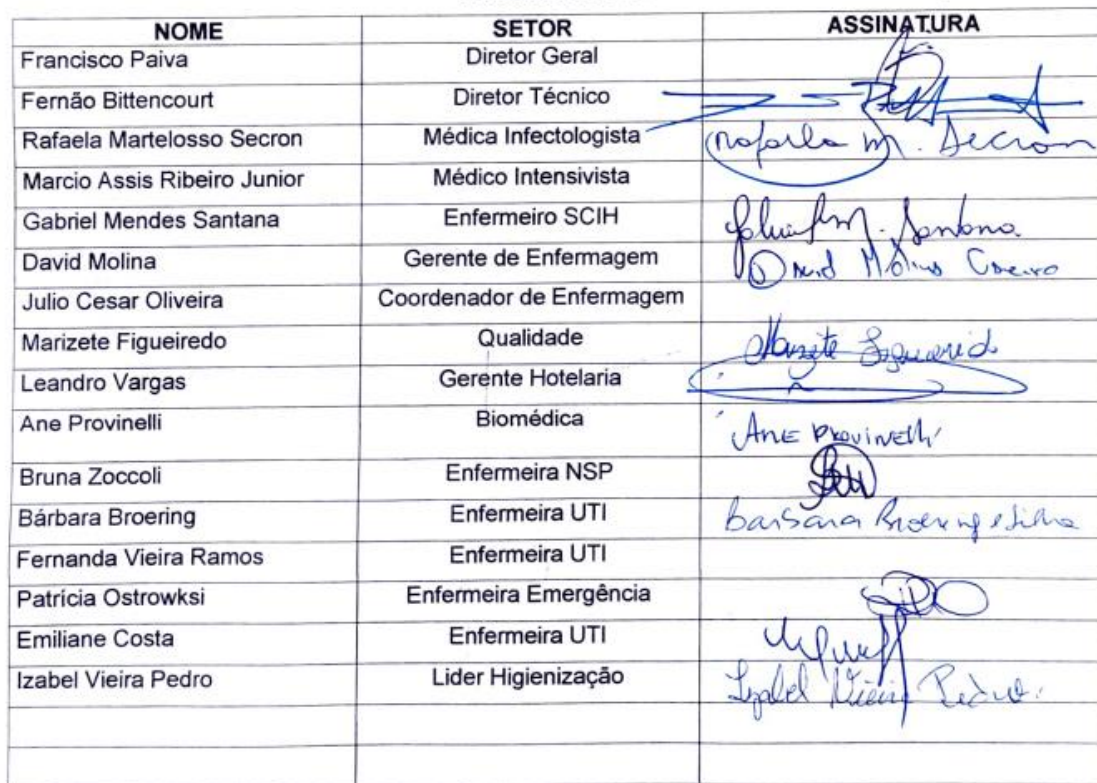 NOME SETOR ASSINATURA
Francisco Paiva Diretor Geral
Fernão Bittencourt Diretor Técnico
Rafaela Martelosso Secron Médica Infectologista Rafaela M. Secron
Marcio Assis Ribeiro Junior Médico Intensivista
Gabriel Mendes Santana Enfermeiro SCIH Gabriel M. Santana
David Molina Gerente de Enfermagem David Molina
Julio Cesar Oliveira Coordenador de Enfermagem
Marizete Figueiredo Qualidade Marizete Figueiredo
Leandro Vargas Gerente Hotelaria
Ane Provinelli Biomédica Ane Provinelli
Bruna Zoccoli Enfermeira NSP
Bárbara Broering Enfermeira UTI Barbara Broering e Silva
Fernanda Vieira Ramos Enfermeira UTI
Patrícia Ostrowksi Enfermeira Emergência
Emiliane Costa Enfermeira UTI
Izabel Vieira Pedro Lider Higienização Izabel Vieira Pedro